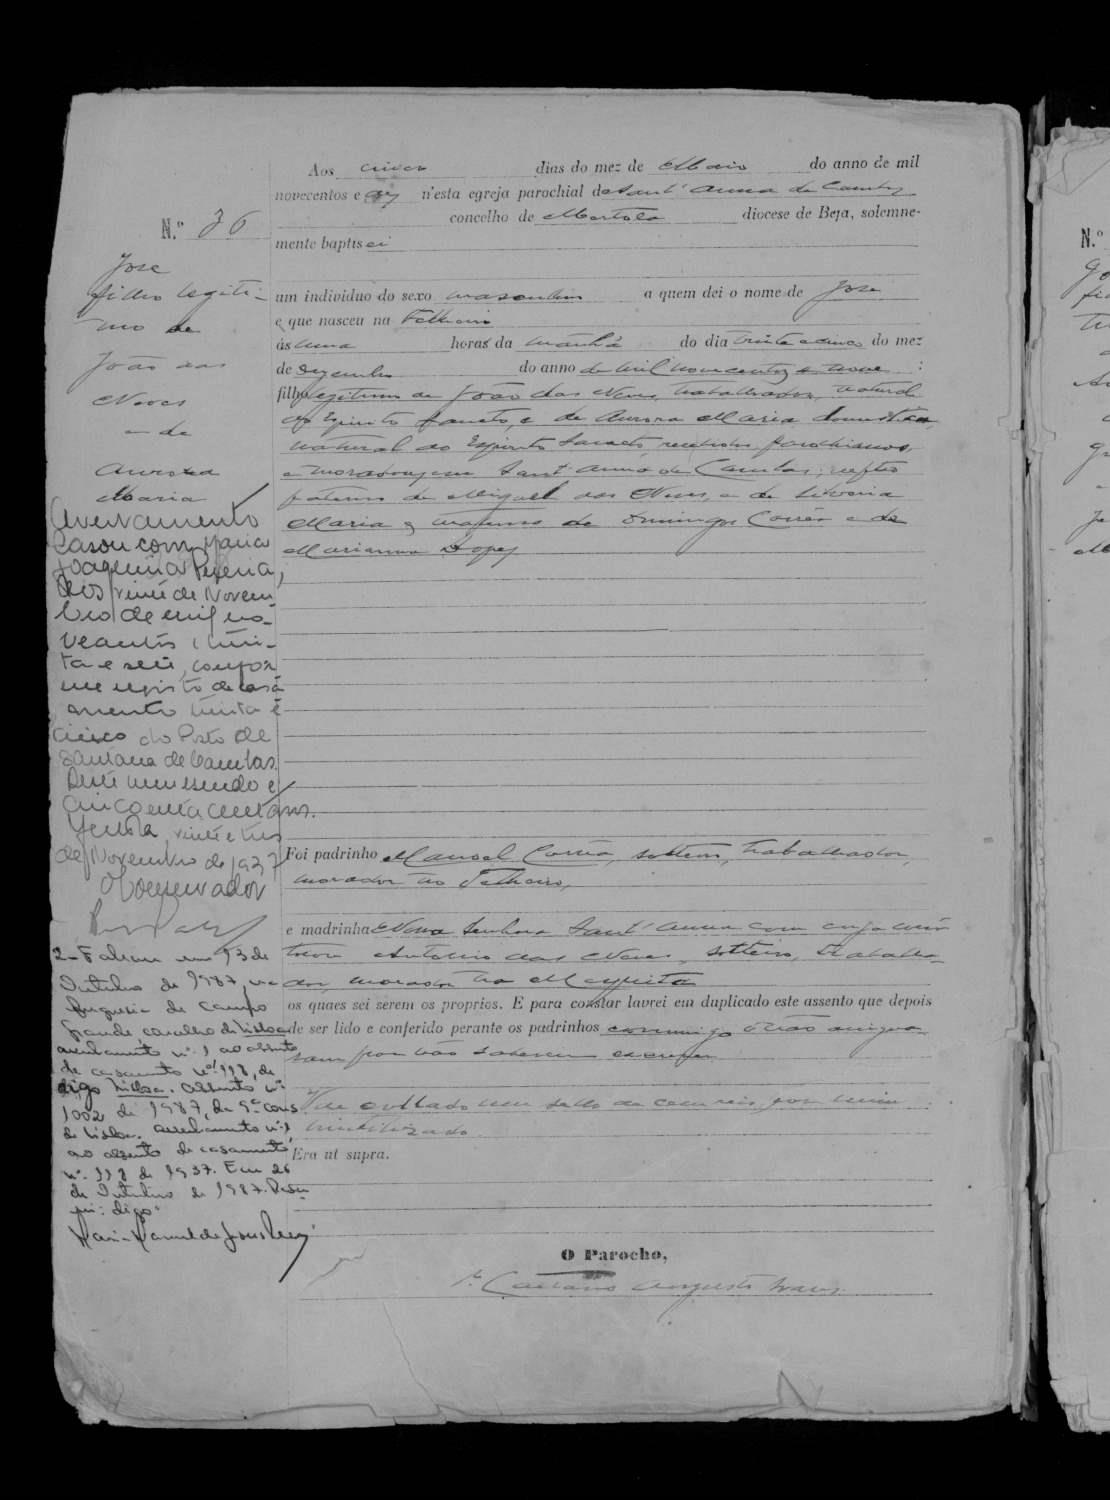 Aos cinco dias do mez de Maio do anno de mil
novecentos e dez n'esta egreja parochial de Sant'Anna de Cambas
concelho de Mertola diocese de Beja, solemne-
mente baptisei
N.º 36
José
filho legiti-
mo de
João das
Neves
e de
Aurora
Maria
um individuo do sexo masculino a quem dei o nome de José
e que nasceu na
ás uma horas da manhã do dia trinta e um do mez
de Dezembro do anno de mil novecentos e nove :
filho legitimo de João das Neves, trabalhador, natural
do Espirito Sancto, e de Aurora Maria domestica,
natural do Espirito Sancto, recebidos, parochianos,
e moradores em Sant'Anna de Cambas; neto
paterno de Miguel das Neves, e de
Maria e materno de Domingos Corrêa e de
Marianna Lopes
Averbamento
Casou com Maria
Joaquina
aos vinte de Novem-
bro de mil no-
vecentos e trin-
ta e sete, confor-
me registo de casa-
mento trinta e
cinco do Posto de
Santana de Cambas.
Deste um escudo e
cincoenta centavos.
Mertola, vinte e tres
de Novembro de 1937
O Conservador
Foi padrinho Manoel Corrêa, solteiro, trabalhador,
morador no
e madrinha Nossa Senhora Sant'Anna com cuja
tocou Antonio das Neves, solteiro, trabalha-
dor, morador na Mesquita
os quaes sei serem os proprios. E para constar lavrei em duplicado este assento que depois
de ser lido e conferido perante os padrinhos commigo o não assigna-
ram por não saberem escrever
Vae collado um sello de cem reis, por mim
inutilizado.
Era ut supra.
2 - Faleceu em 13 de
Outubro de 1987, na
freguesia de Campo
Grande concelho de Lisboa
averbamento nº 1 ao assento
de casamento nº 118, de
digo Lisboa. Assento nº
1002 de 1987, da 9ª Cons
de Lisboa. Averbamento nº 1
ao assento de casamento
nº 118 de 1937. Em 26
de Outubro de 1987.
digo:
O Parocho,
Pe. Caetano Augusto
N.º